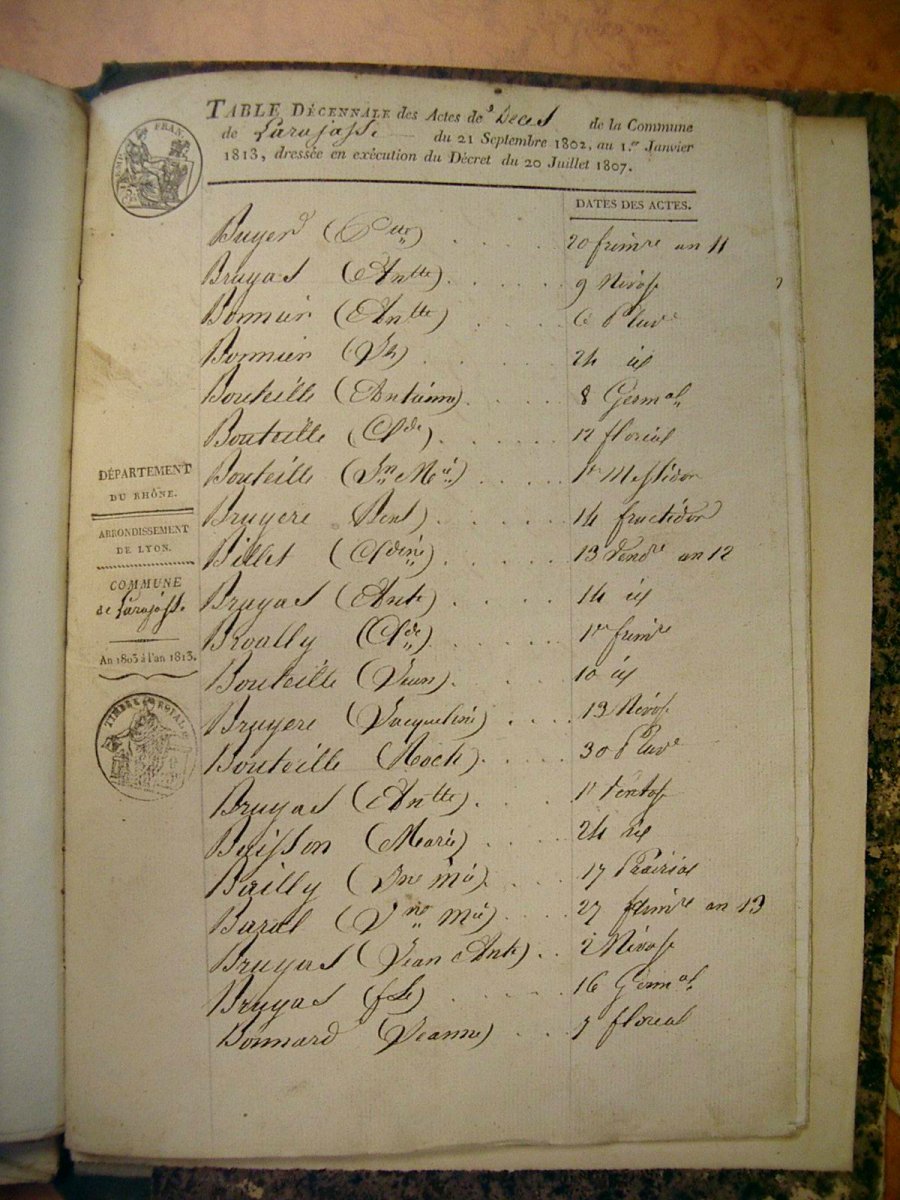 TABLE DÉCENNALE des Actes de Décès de la Commune
de Larajasse du 21 Septembre 1802, au 1.er Janvier
1813, dressée en exécution du Décret du 20 Juillet 1807.
DATES DES ACTES.
EMP. FRAN.
DÉPARTEMENT
DU RHÔNE.
ARRONDISSEMENT
DE LYON.
COMMUNE
de Larajasse
An 1803 à l'an 1813.
TIMBRE ROYAL
Buyer 20 frimre an 11
Bruyas (Antte) 9 Nivose
Bonnier (Antte) 6 Pluve
Bonnier 24 id
Bouteille (Antoine) 8 Germal
Bouteille (Clde) 12 floréal
Bouteille (Jn Mie) 1er Messidor
Bruyere (Bent) 14 fructidor
Billet (Cldine) 13 Vendre an 12
Bruyas (Ante) 14 id
Broally (Clde) 1er frimre
Bouteille (Jean) 10 id
Bruyere (Jacqueline) 13 Nivose
Bouteille (Roch) 30 Pluve
Bruyas (Antte) 1er Ventose
Buisson (Marie) 24 id
Bailly (Jne Mie) 17 Prairial
Baral (Jne Mie) 27 frimre an 13
Bruyas (Jean Ante) 2 Nivose
Bruyas 16 Germal
Bonnard (Jeanne) 7 floréal